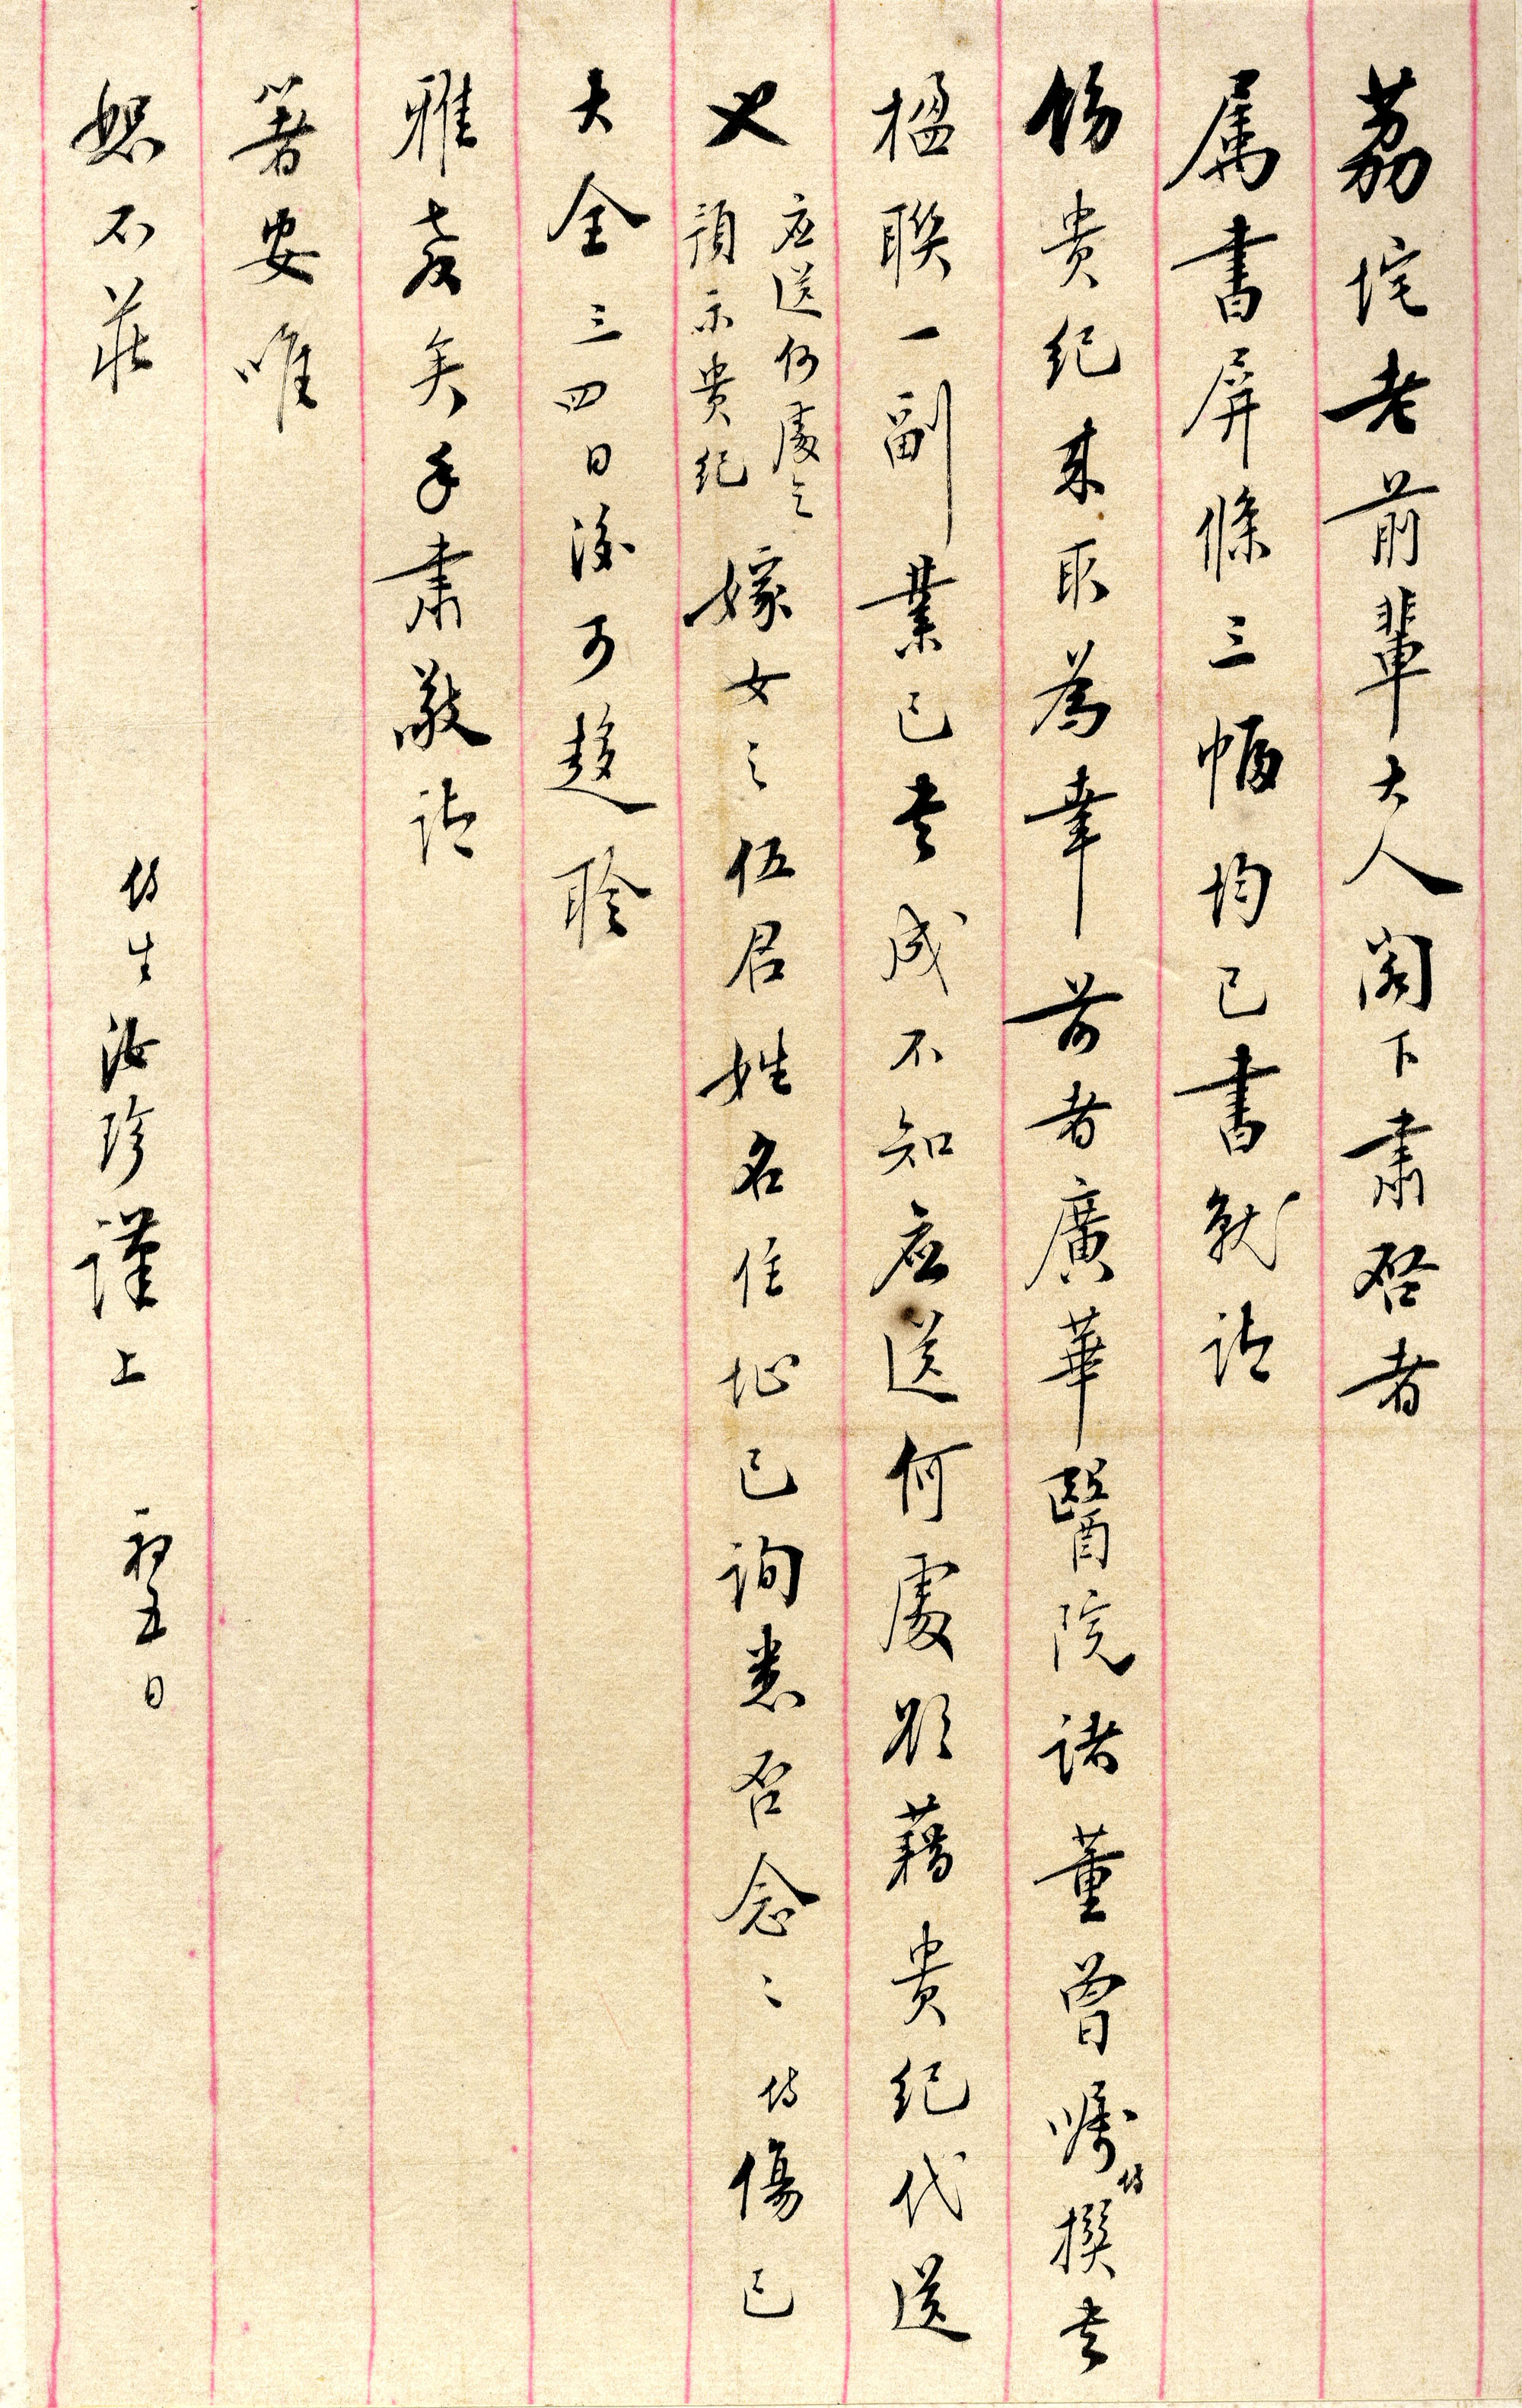 荔垞老前輩大人閣下肅啓者
属書屏條三幅均已書就請
飭貴紀來取為幸前者廣華醫院諸董曾嘱侍撰书
楹聯一副業已书成不知应送何處欲藉貴紀代送
也应送何處乞預示貴紀嫁女之伍君姓名住址已詢悉否念〻侍傷已
大全三四日後可趍聆
雅教矣手肅敬請
箸安唯
恕不莊
侍生汝珍謹上 初五日